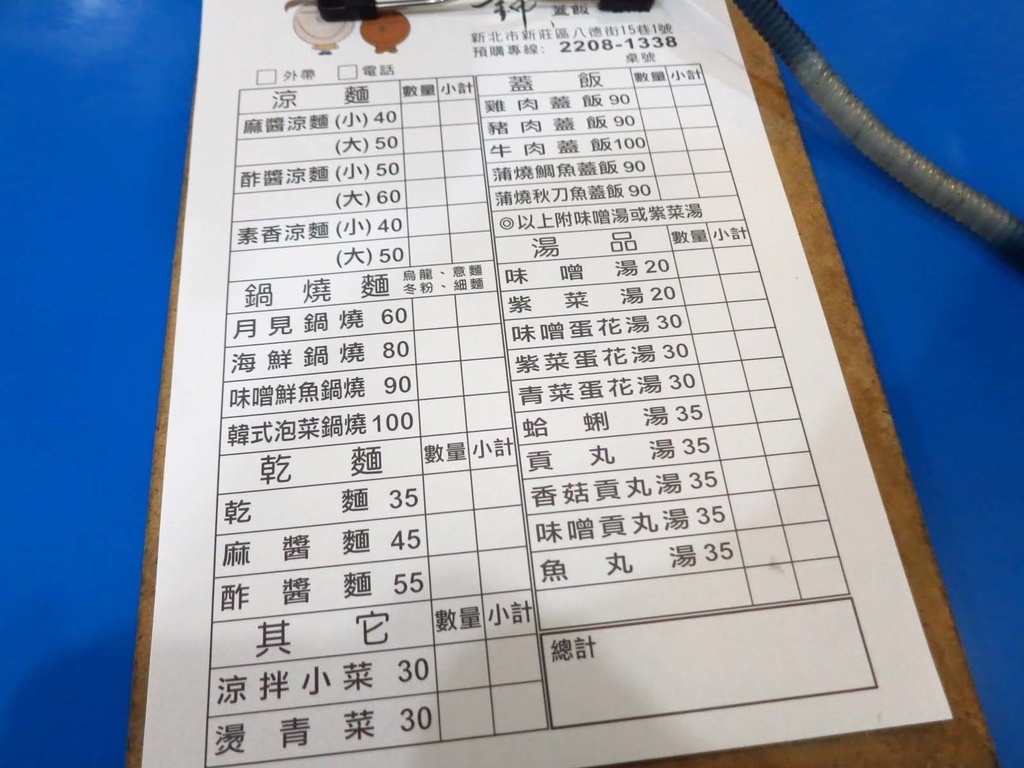 蓋飯
新北市新莊區八德街15巷1號
預購專線: 2208-1338
桌號
外帶 電話
涼麵 數量 小計
麻醬涼麵(小) 40
(大) 50
酢醬涼麵(小) 50
(大) 60
素香涼麵(小) 40
(大) 50
鍋燒麵 烏龍、意麵
冬粉、細麵
月見鍋燒 60
海鮮鍋燒 80
味噌鮮魚鍋燒 90
韓式泡菜鍋燒 100
乾麵 數量 小計
乾麵 35
麻醬麵 45
酢醬麵 55
其它 數量 小計
涼拌小菜 30
燙青菜 30
蓋飯 數量 小計
雞肉蓋飯 90
豬肉蓋飯 90
牛肉蓋飯 100
蒲燒鯛魚蓋飯 90
蒲燒秋刀魚蓋飯 90
◎以上附味噌湯或紫菜湯
湯品 數量 小計
味噌湯 20
紫菜湯 20
味噌蛋花湯 30
紫菜蛋花湯 30
青菜蛋花湯 30
蛤蜊湯 35
貢丸湯 35
香菇貢丸湯 35
味噌貢丸湯 35
魚丸湯 35
總計